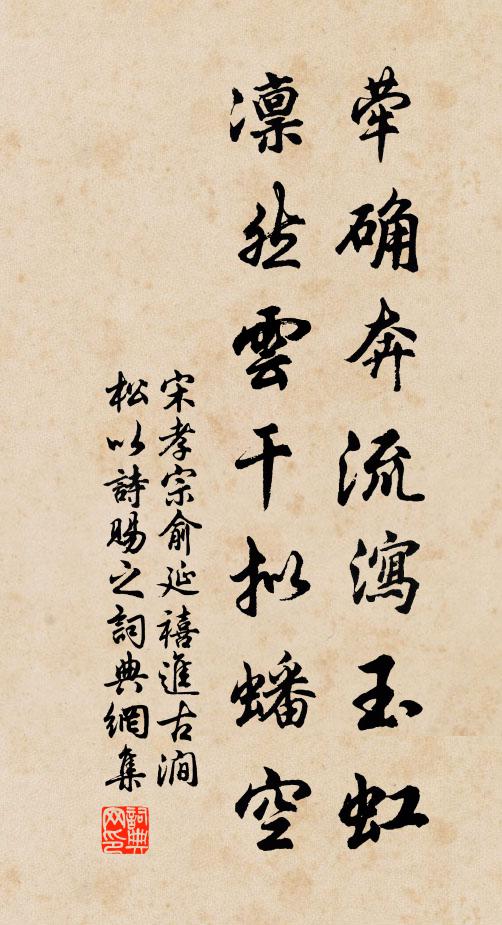 犖确奔流瀉玉虹
凛然雲干拟蟠空
宋孝宗俞延禧進古澗
松以詩賜之詞典網集
詞典
网印